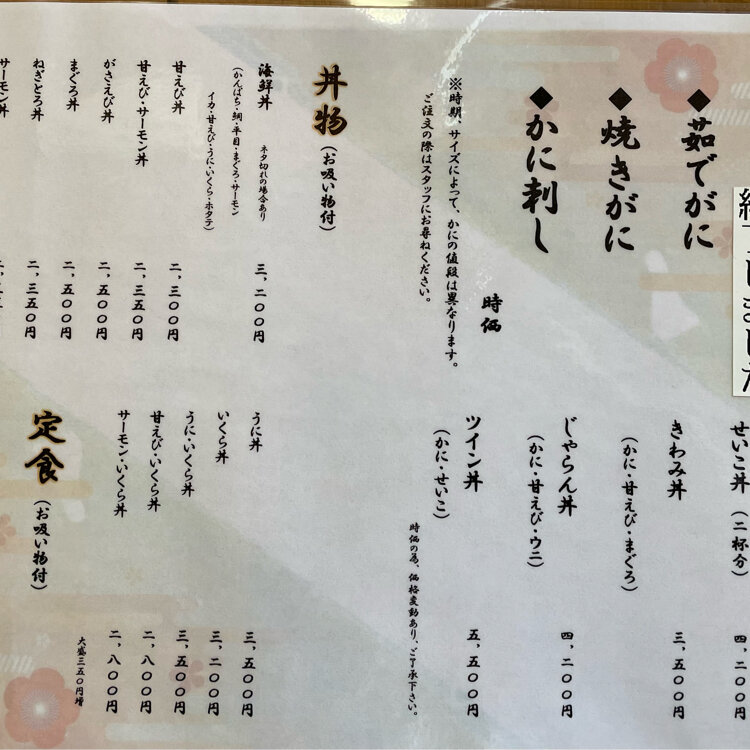 しました
◆茹でがに
◆焼きがに
◆かに刺し
時価
※時期、サイズによって、かにの値段は異なります。
ご注文の際はスタッフにお尋ねください。
せいこ丼(二杯分)
きわみ丼
(かに・甘えび・まぐろ)
三、五〇〇円
じゃらん丼
(かに・甘えび・ウニ)
四、二〇〇円
ツイン丼
(かに・せいこ)
五、五〇〇円
時価の為、価格変動あり、ご了承下さい。
丼物(お吸い物付)
海鮮丼 ネタ切れの場合あり
(かんぱち・鯛・平目・まぐろ・サーモン
イカ・甘えび・うに・いくら・ホタテ)
三、二〇〇円
甘えび丼
二、三〇〇円
甘えび・サーモン丼
二、三五〇円
がさえび丼
二、五〇〇円
まぐろ丼
二、五〇〇円
ねぎとろ丼
二、三五〇円
サーモン丼
うに丼
三、五〇〇円
いくら丼
三、二〇〇円
うに・いくら丼
三、五〇〇円
甘えび・いくら丼
二、八〇〇円
サーモン・いくら丼
二、八〇〇円
大盛三五〇円増
定食(お吸い物付)